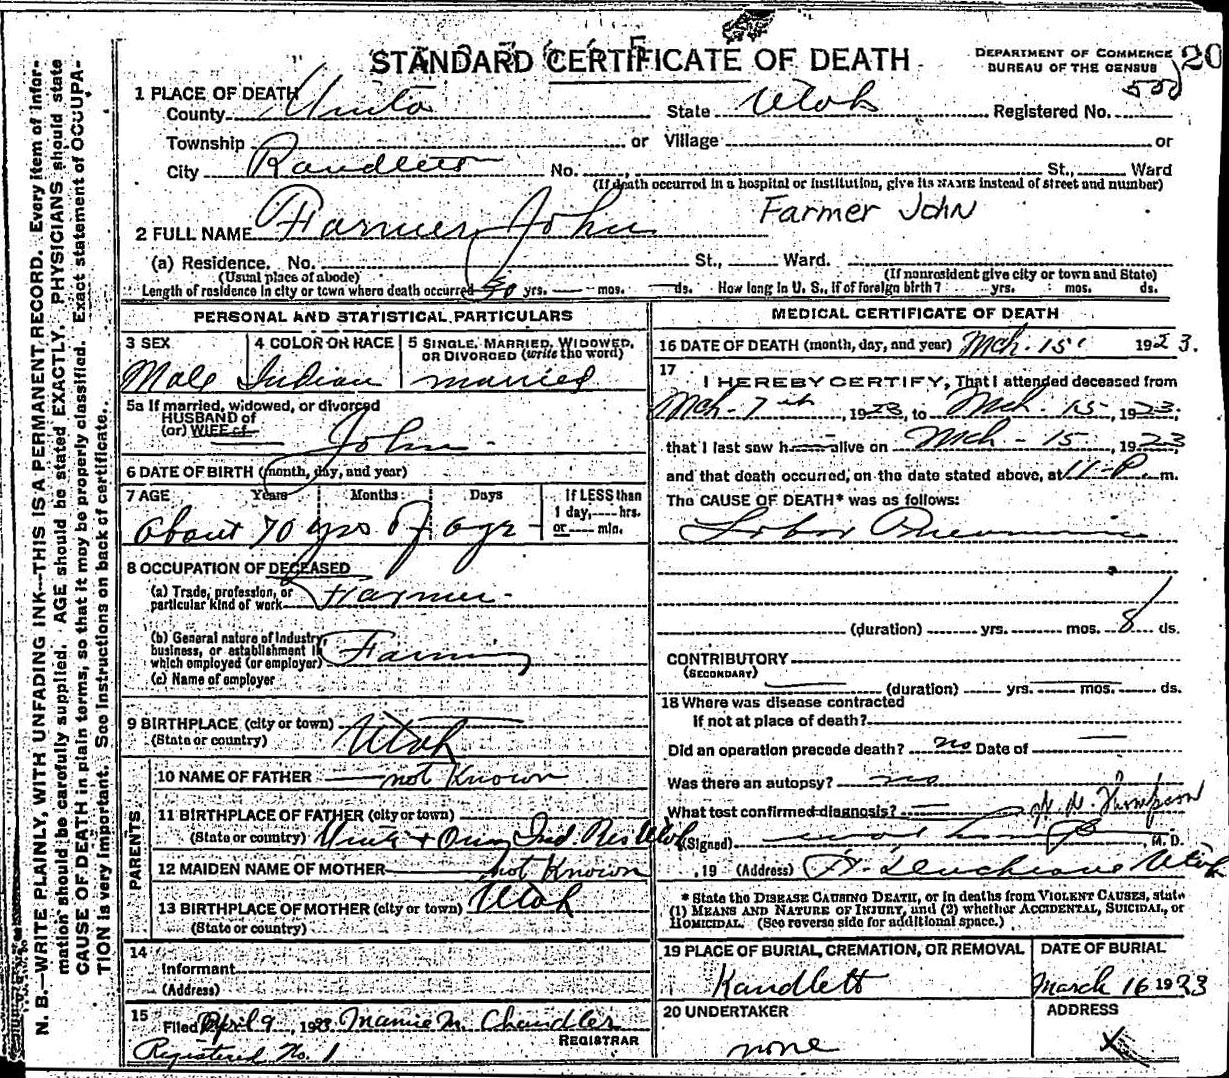 STANDARD CERTIFICATE OF DEATH
DEPARTMENT OF COMMERCE
BUREAU OF THE CENSUS
20
1 PLACE OF DEATH
County Uinta State Utah Registered No.
Township or Village or
City Randlett No. St., Ward
(If death occurred in a hospital or institution, give its NAME instead of street and number)
2 FULL NAME Farmer John Farmer John
(a) Residence. No. St., Ward.
(Usual place of abode) (If nonresident give city or town and State)
Length of residence in city or town where death occurred yrs. mos. ds. How long in U. S., if of foreign birth? yrs. mos. ds.
PERSONAL AND STATISTICAL PARTICULARS
3 SEX 4 COLOR OR RACE 5 SINGLE, MARRIED, WIDOWED, OR DIVORCED (write the word)
Male Indian married
5a If married, widowed, or divorced
HUSBAND of
(or) WIFE of John
6 DATE OF BIRTH (month, day, and year)
7 AGE Years Months Days If LESS than 1 day, hrs. or min.
about 70 yrs of age
8 OCCUPATION OF DECEASED
(a) Trade, profession, or particular kind of work Farmer
(b) General nature of Industry, business, or establishment in which employed (or employer) Farming
(c) Name of employer
9 BIRTHPLACE (city or town)
(State or country) Utah
PARENTS
10 NAME OF FATHER not Known
11 BIRTHPLACE OF FATHER (city or town)
(State or country) Uinta + Ouray Ind. Res Utah
12 MAIDEN NAME OF MOTHER not Known
13 BIRTHPLACE OF MOTHER (city or town) Utah
(State or country)
14
Informant
(Address)
15 Filed April 9, 1923 Mamie M. Chandler
REGISTRAR
Registered No. 1
MEDICAL CERTIFICATE OF DEATH
16 DATE OF DEATH (month, day, and year) Mch. 15 1923.
17
I HEREBY CERTIFY, That I attended deceased from
Mch. 7th, 1923, to Mch. 15, 1923,
that I last saw h alive on Mch - 15, 1923
and that death occurred, on the date stated above, at 11-P m.
The CAUSE OF DEATH* was as follows:
Lobar Pneumonia
(duration) yrs. mos. 8 ds.
CONTRIBUTORY
(SECONDARY)
(duration) yrs. mos. ds.
18 Where was disease contracted
If not at place of death?
Did an operation precede death? no Date of
Was there an autopsy? no
What test confirmed diagnosis?
Thompson
(Signed) , M. D.
, 19 (Address) Ft. Duchesne Utah
* State the DISEASE CAUSING DEATH, or in deaths from VIOLENT CAUSES, state
(1) MEANS AND NATURE OF INJURY, and (2) whether ACCIDENTAL, SUICIDAL, or
HOMICIDAL. (See reverse side for additional space.)
19 PLACE OF BURIAL, CREMATION, OR REMOVAL DATE OF BURIAL
Randlett March 16 1923
20 UNDERTAKER ADDRESS
none
N. B.—WRITE PLAINLY, WITH UNFADING INK—THIS IS A PERMANENT RECORD. Every item of infor-
mation should be carefully supplied. AGE should be stated EXACTLY. PHYSICIANS should state
CAUSE OF DEATH in plain terms, so that it may be properly classified. Exact statement of OCCUPA-
TION is very important. See instructions on back of certificate.